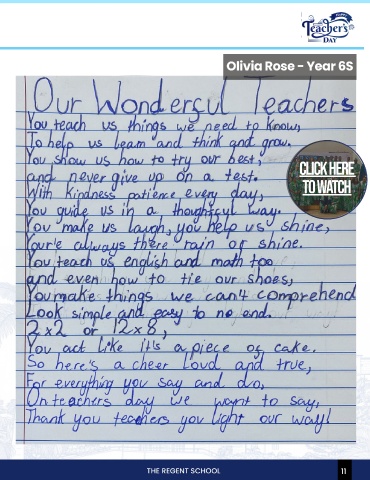 Teacher's
DAY
Olivia Rose - Year 6S
Our Wonderful Teachers
You teach us things we need to know,
To help us learn and think and grow.
You show us how to try our best,
and never give up on a test.
With kindness patience every day,
You guide us in a thoughtful way.
You make us laugh, you help us shine,
Your'e always there rain or shine.
You teach us english and math too
and even how to tie our shoes,
You make things we can't comprehend
Look simple and easy to no end.
2x2 or 12x8,
You act like it's a piece of cake.
So here's a cheer loud and true,
For everything you say and do,
On teachers day we want to say,
Thank you teachers you light our way!
CLICK HERE
TO WATCH
THE REGENT SCHOOL
11